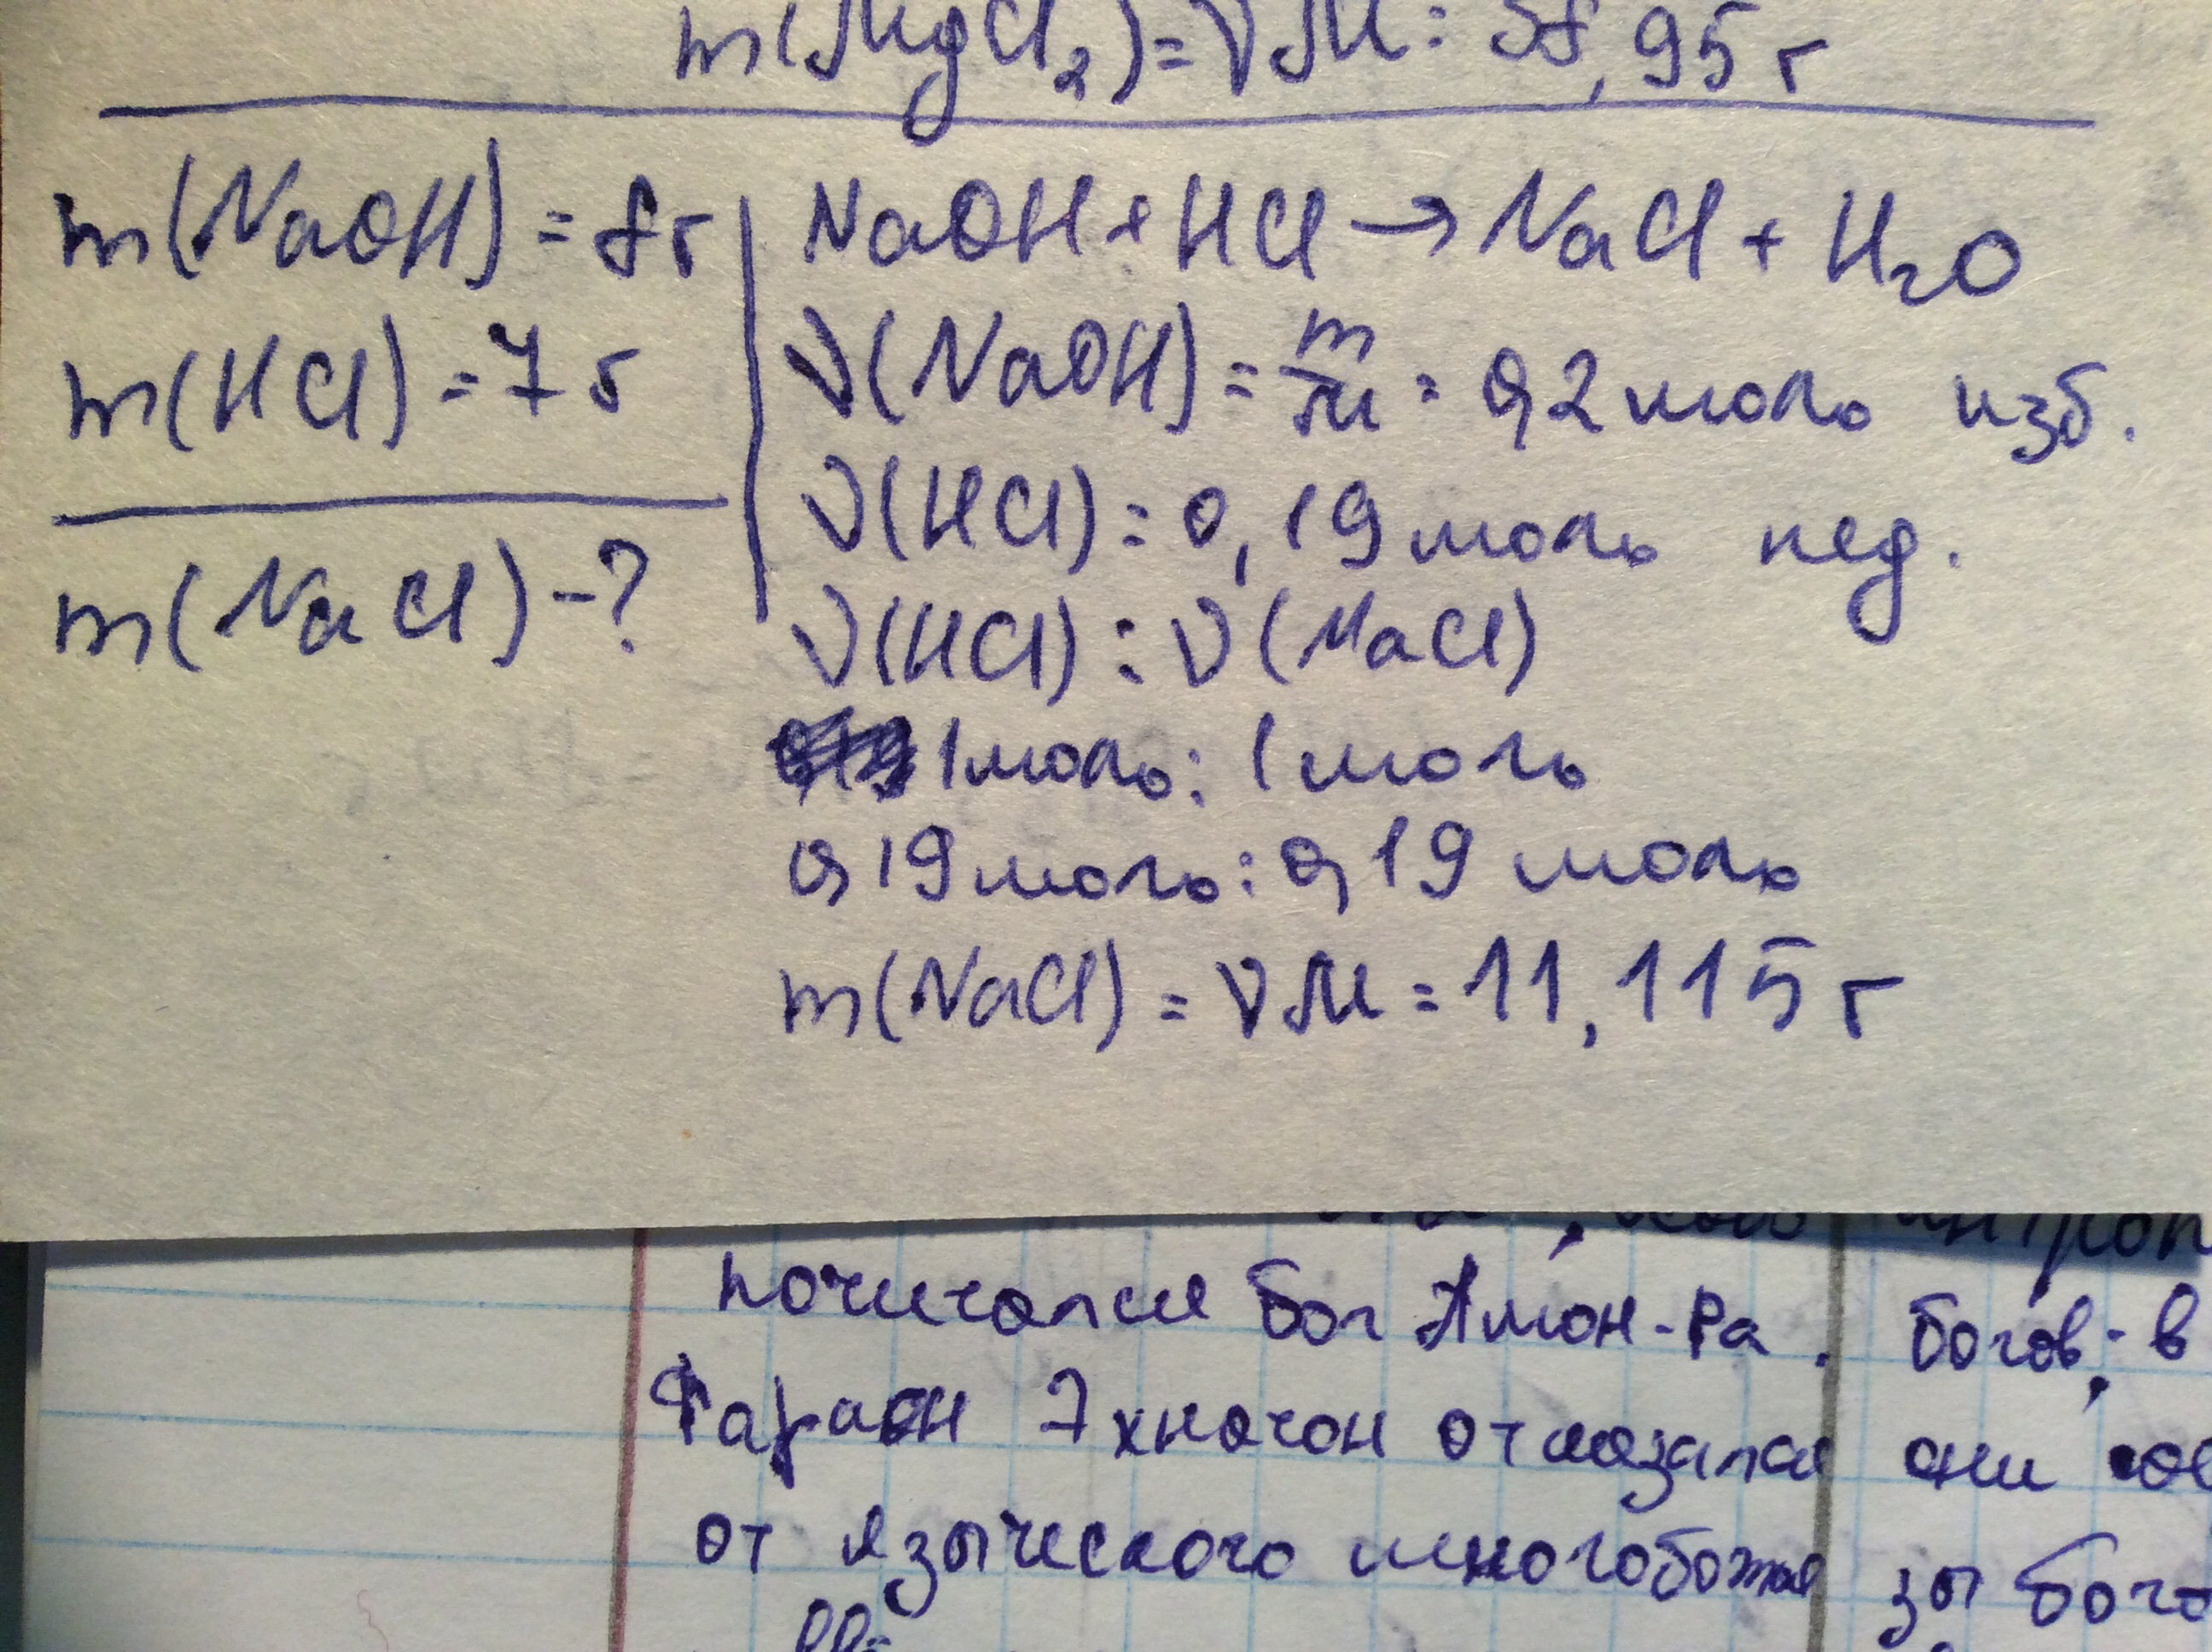 m(MgCl₂) = νM = 58,95 г
m(NaOH) = 8г
m(HCl) = 7 г
m(NaCl) - ?
NaOH + HCl → NaCl + H₂O
ν(NaOH) = m/M = 0,2 моль изб.
ν(HCl) = 0,19 моль нед.
ν(HCl) : ν(NaCl)
1 моль : 1 моль
0,19 моль : 0,19 моль
m(NaCl) = νM = 11,115 г
почитался бог Амон-Ра.
Фараон Эхнатон отказался
от языческого многобожия
богов; в
они
зы бого